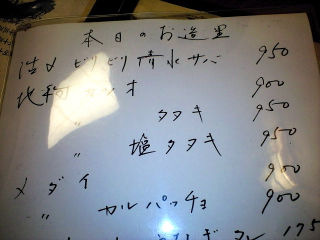 本日のお造里
活〆ビリビリ清水サバ 950
地 カツオ 900
〃 タタキ 950
〃 塩タタキ 950
メダイ 900
〃 カルパッチョ 900